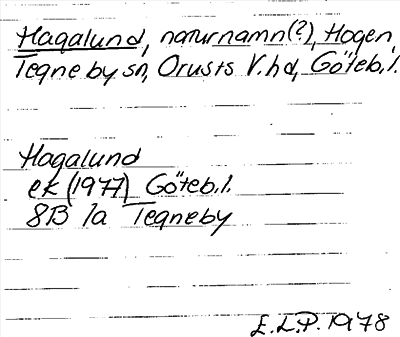 Hagalund, naturnamn(?), Hogen
Tegneby sn, Orusts V. hd, Göteb. l.
Hagalund
ek (1977) Göteb. l.
8B 1a Tegneby
E.L.P. 1978